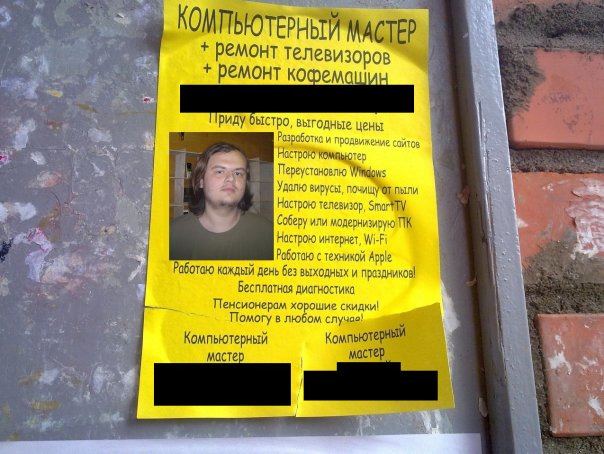 КОМПЬЮТЕРНЫЙ МАСТЕР
+ ремонт телевизоров
+ ремонт кофемашин
Приду быстро, выгодные цены
Разработка и продвижение сайтов
Настрою компьютер
Переустановлю Windows
Удалю вирусы, почищу от пыли
Настрою телевизор, SmartTV
Соберу или модернизирую ПК
Настрою интернет, Wi-Fi
Работаю с техникой Apple
Работаю каждый день без выходных и праздников!
Бесплатная диагностика
Пенсионерам хорошие скидки!
Помогу в любом случае!
Компьютерный
мастер
Компьютерный
мастер